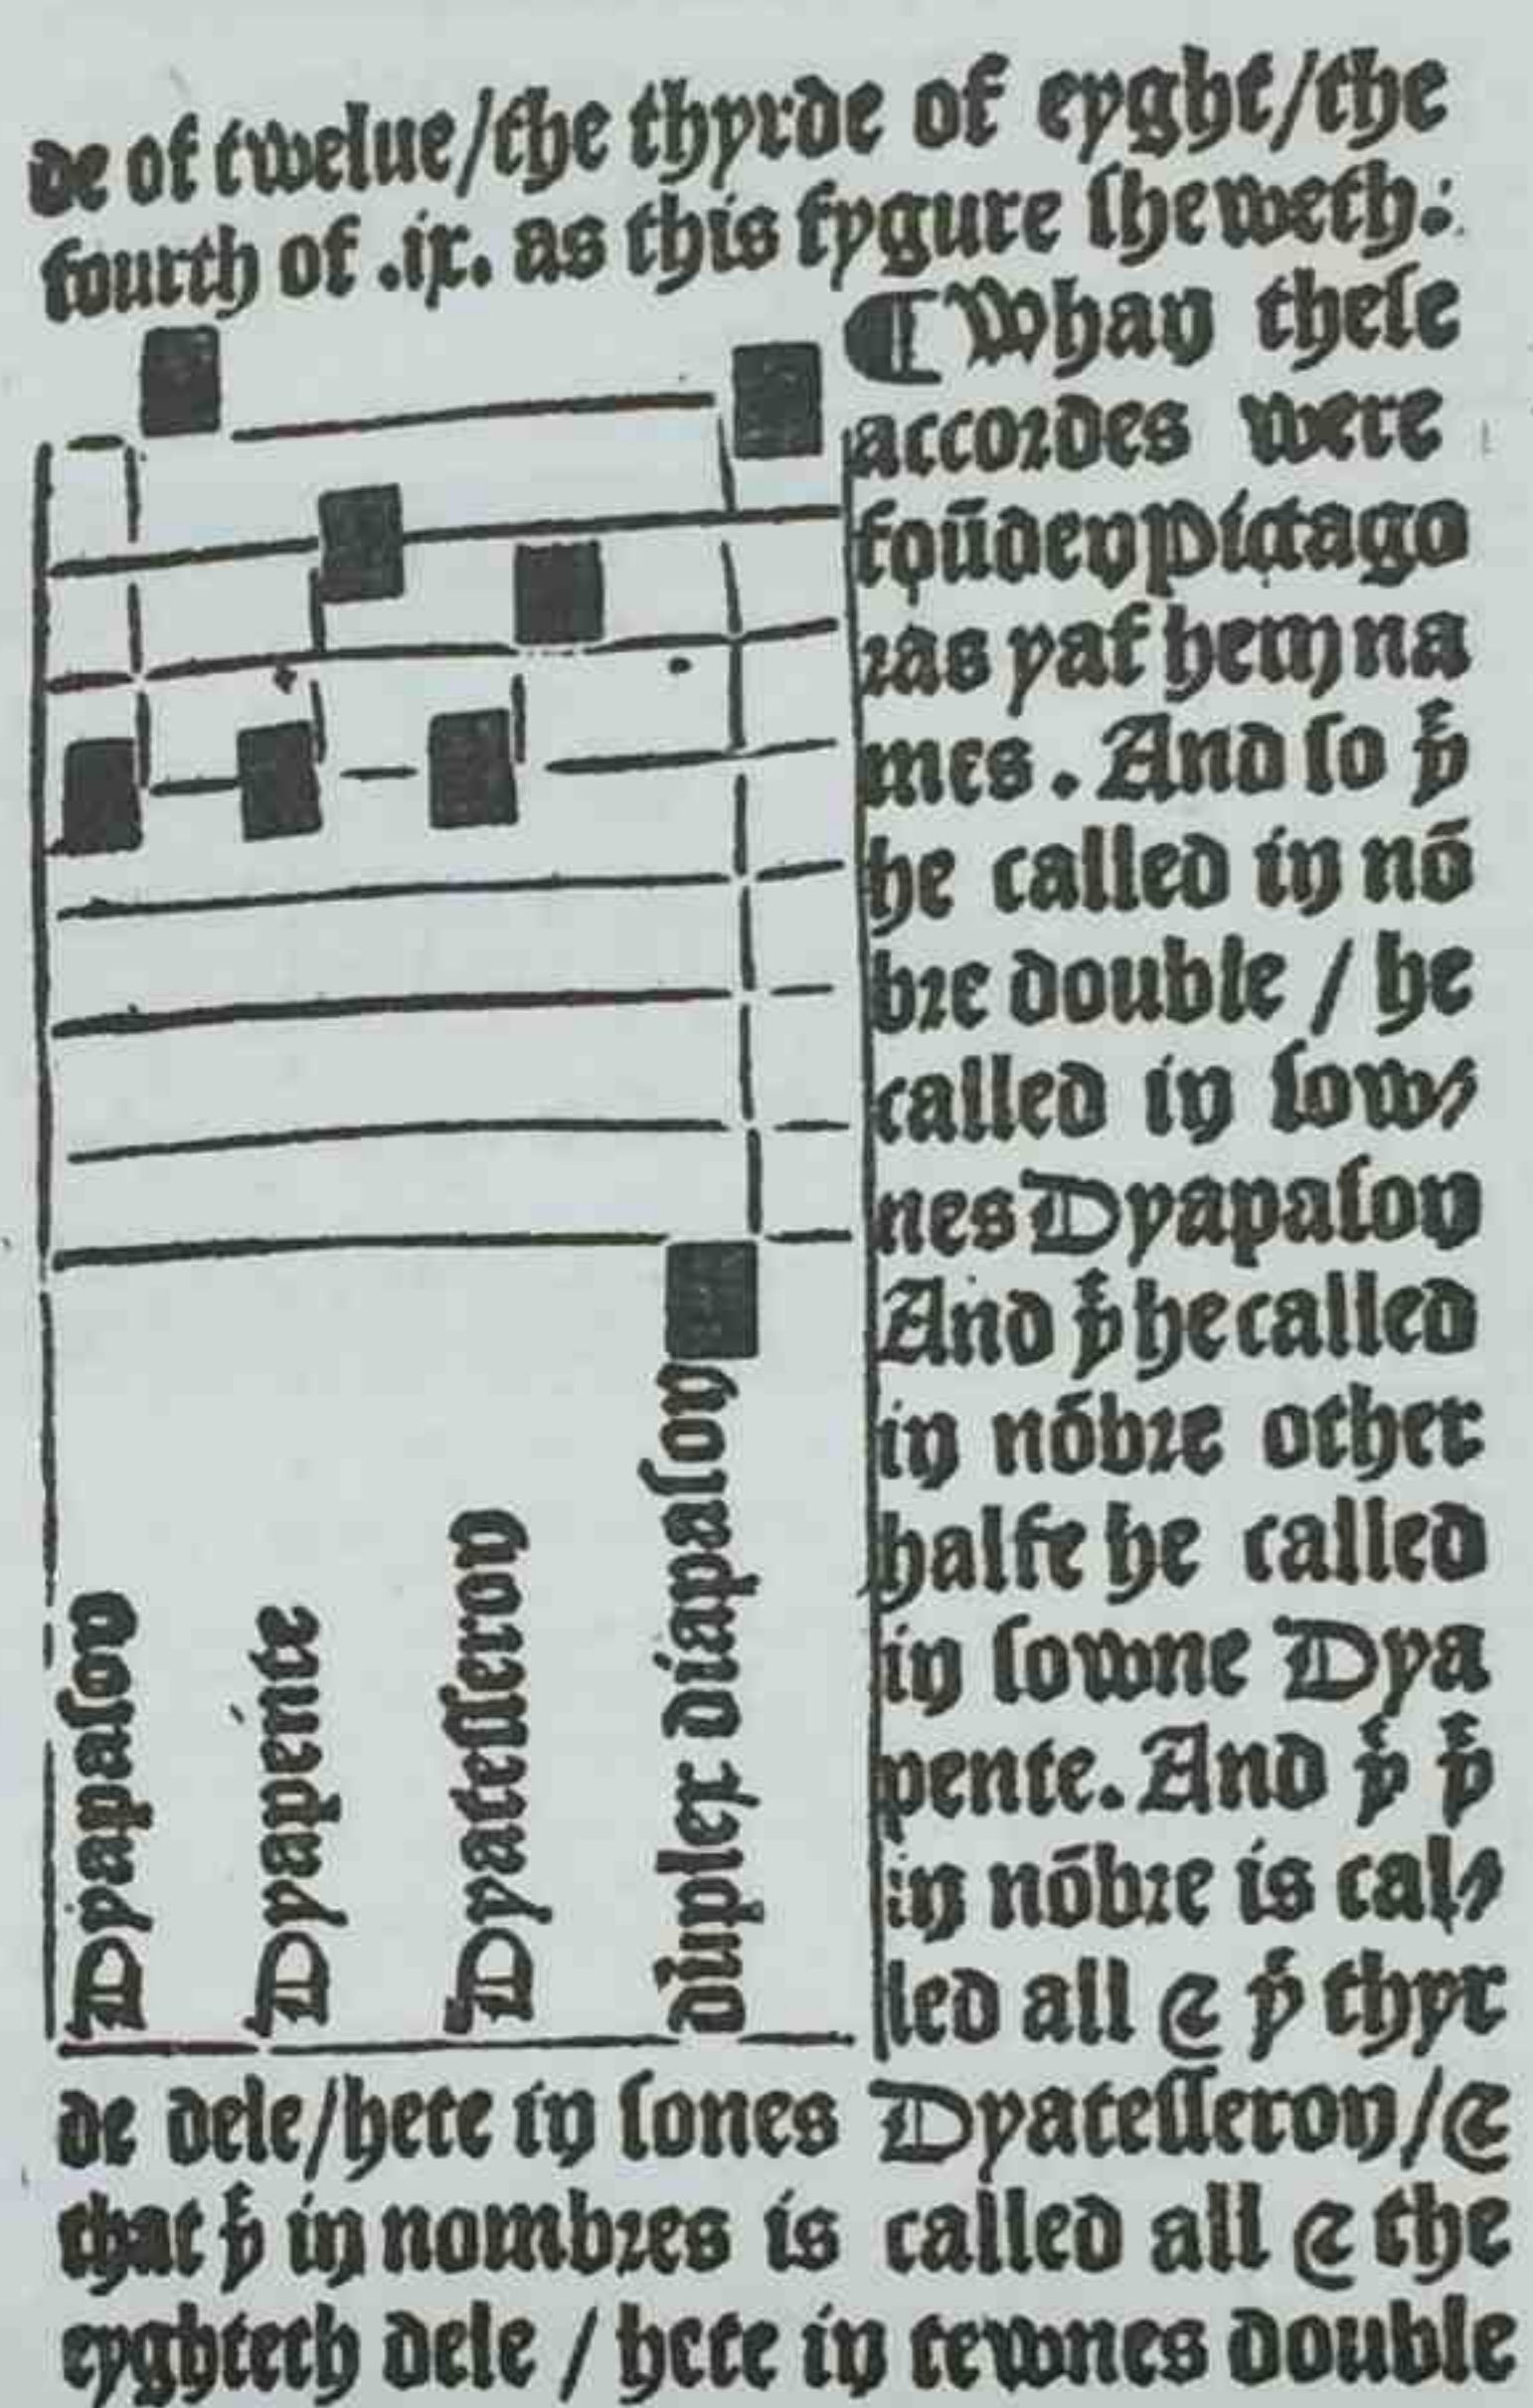 de of twelue/the thyrde of eyght/the
fourth of .ix. as this fygure sheweth:
¶Whan these
accordes were
foūden Pictago
ras yaf hem na
mes. And so þͭ
he called in nō
bre double / he
called in sow⸗
nes Dyapason
And þͭ he called
in nōbre other
halfe he called
in sowne Dya
pente. And þͭ þͭ
in nōbre is cal⸗
led all & þͤ thyr
de dele/hete in sones Dyatesseron/&
that þͭ in nombres is called all & the
eyghteth dele / hete in tewnes double
Dyapason
Dyapente
Dyatesseron
dupler diapason